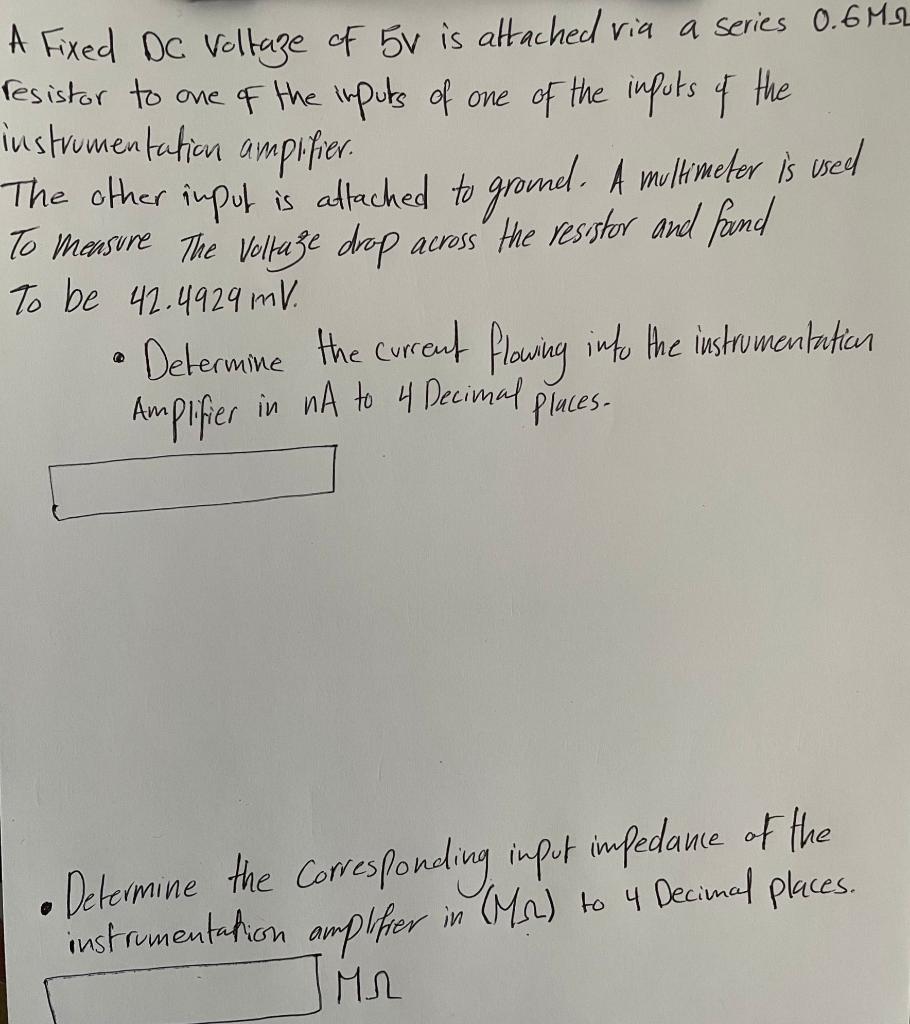 A Fixed DC Voltage of 5V is attached via a series 0.6MΩ
resistor to one of the inputs of one of the inputs of the
instrumentation amplifier.
The other input is attached to ground. A multimeter is used
To measure The Voltage drop across the resistor and found
To be 42.4929 mV.
• Determine the current flowing into the instrumentation
Amplifier in nA to 4 Decimal places.
• Determine the Corresponding input impedance of the
instrumentation amplifier in (MΩ) to 4 Decimal places.
MΩ